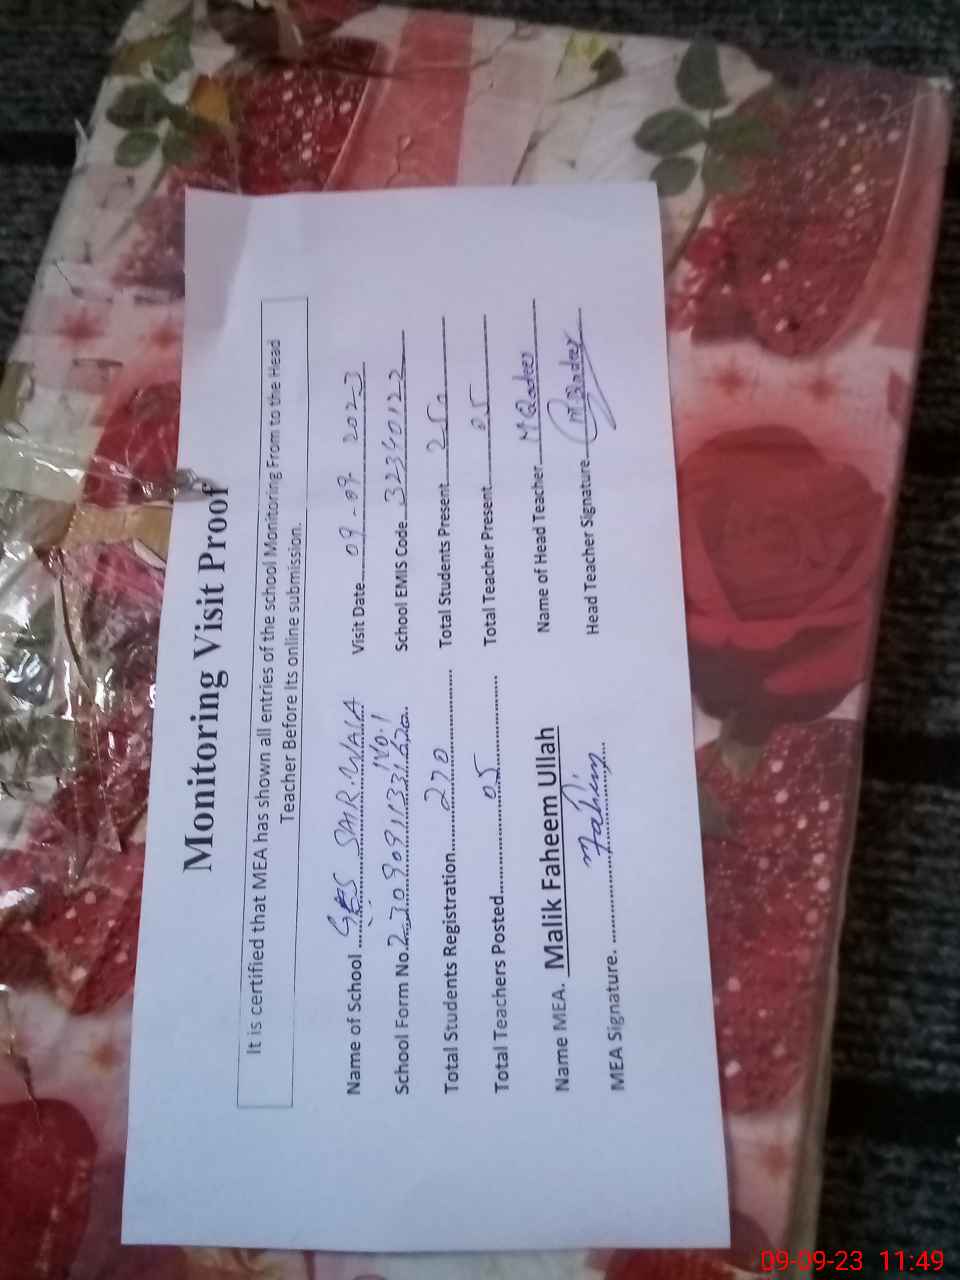 Monitoring Visit Proof
It is certified that MEA has shown all entries of the school Monitoring From to the Head
Teacher Before Its online submission.
Name of School SAR.WALA No.1 Visit Date 09-09-2023
School Form No. School EMIS Code 32340122
Total Students Registration 270 Total Students Present 250
Total Teachers Posted 05 Total Teacher Present 05
Name MEA. Malik Faheem Ullah Name of Head Teacher M Qadeer
MEA Signature. Faheem Head Teacher Signature M Qadeer
09-09-23 11:49